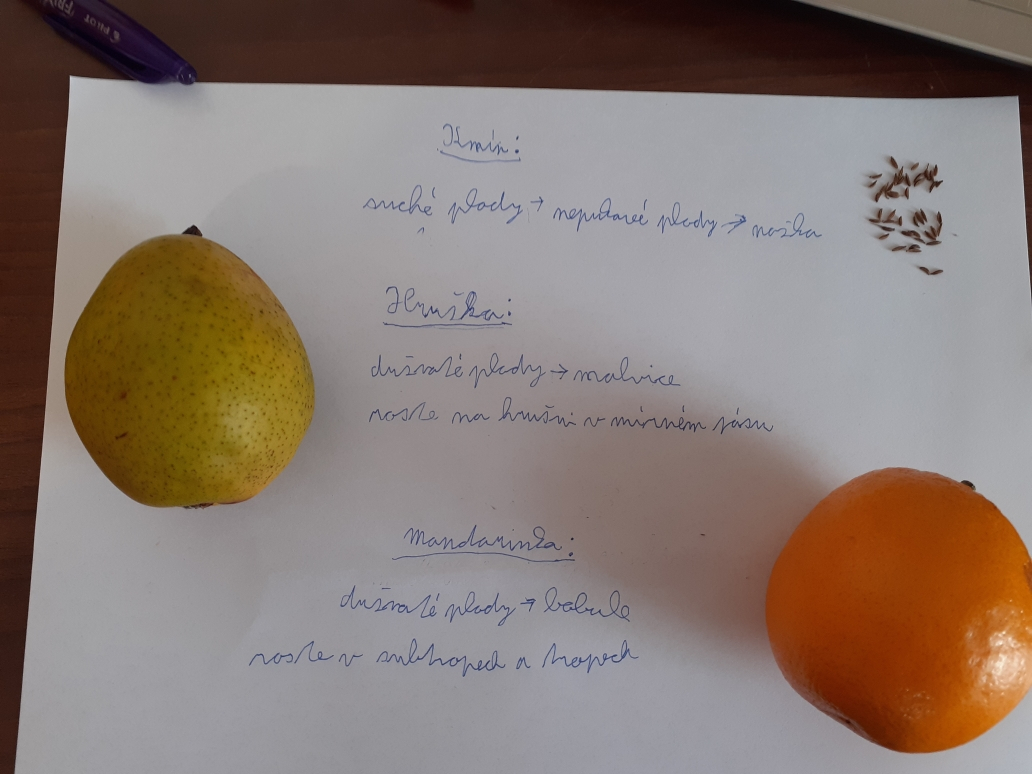 PILOT FRI
Kmín:
suché plody → nepukavé plody → nažka
Hruška:
dužnaté plody → malvice
roste na hrušni v mírném pásu
Mandarinka:
dužnaté plody → bobule
roste v subtropech a tropech